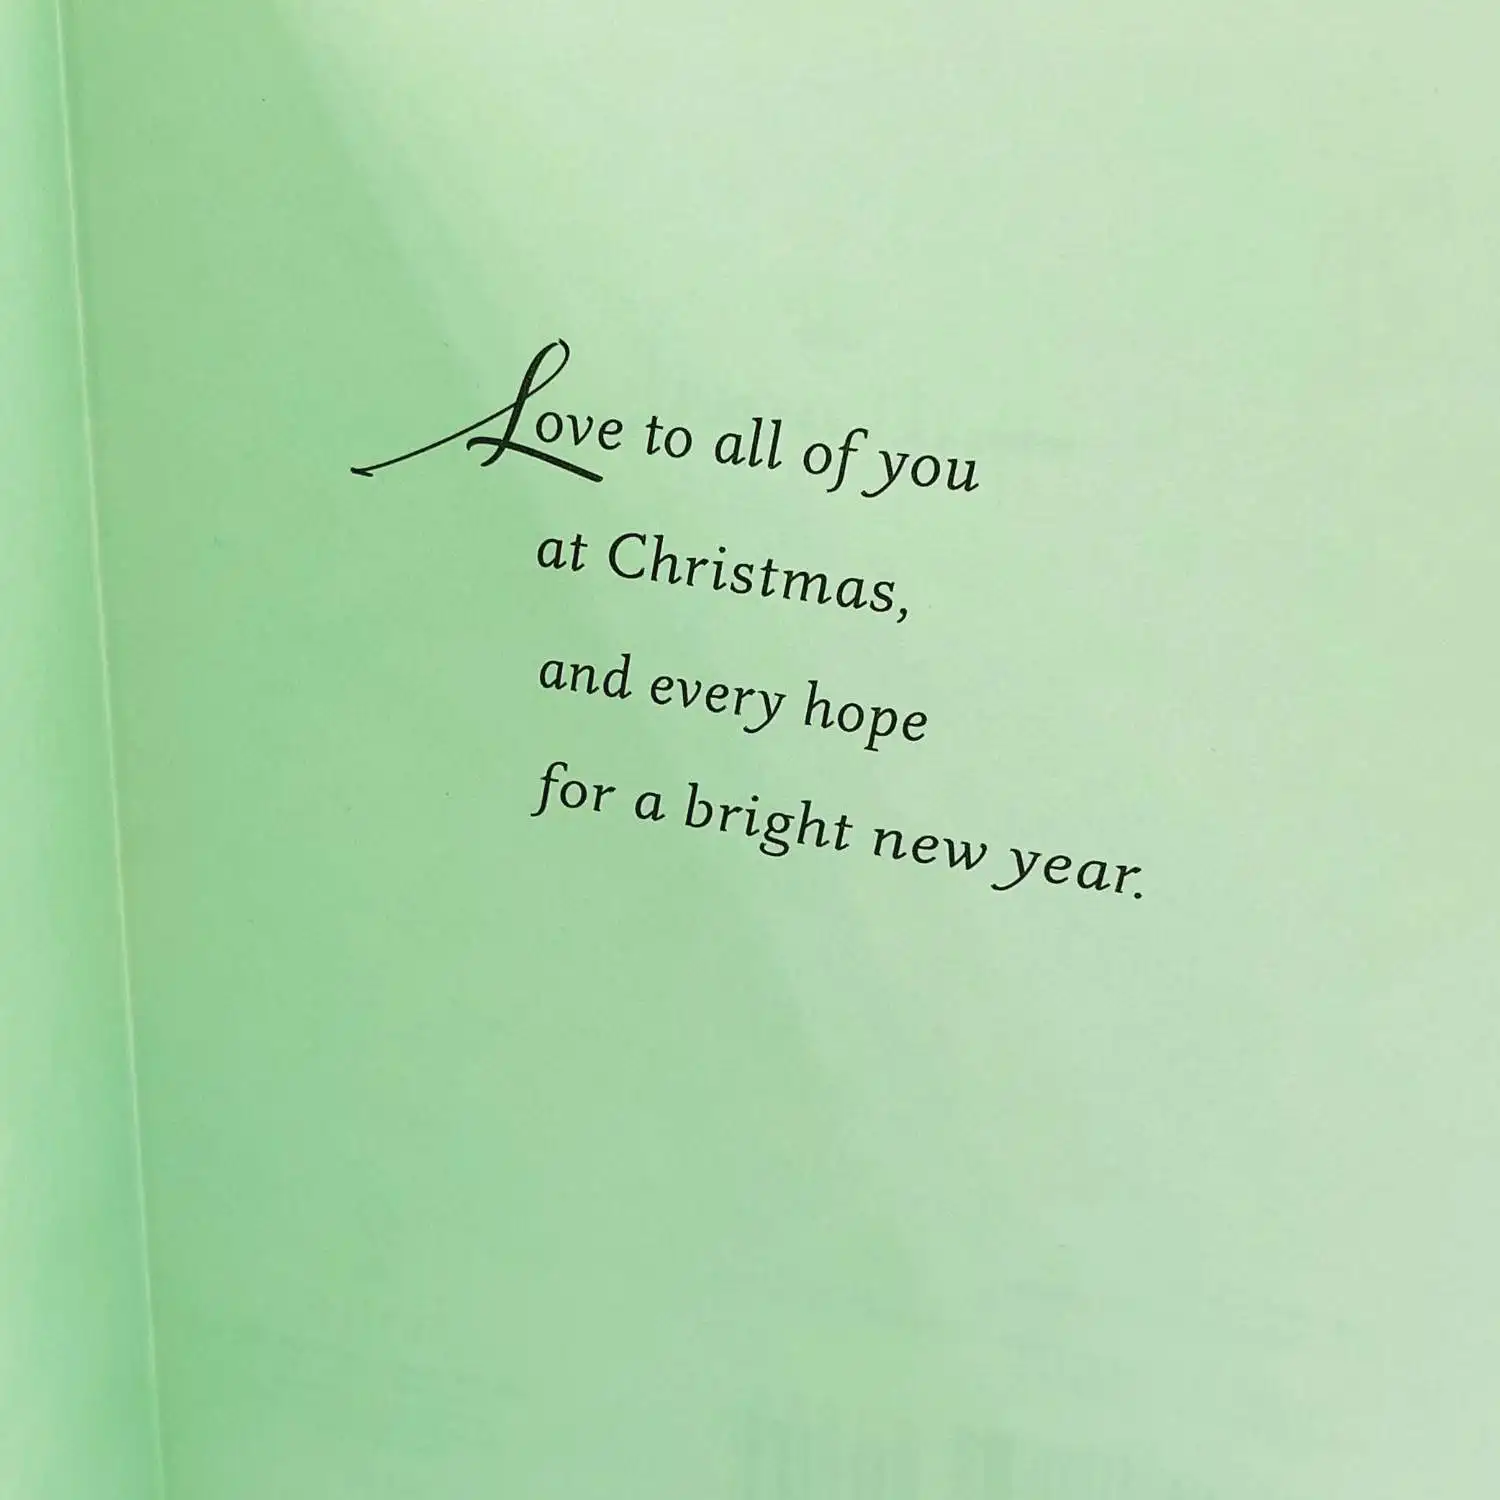 Love to all of you
at Christmas,
and every hope
for a bright new year.